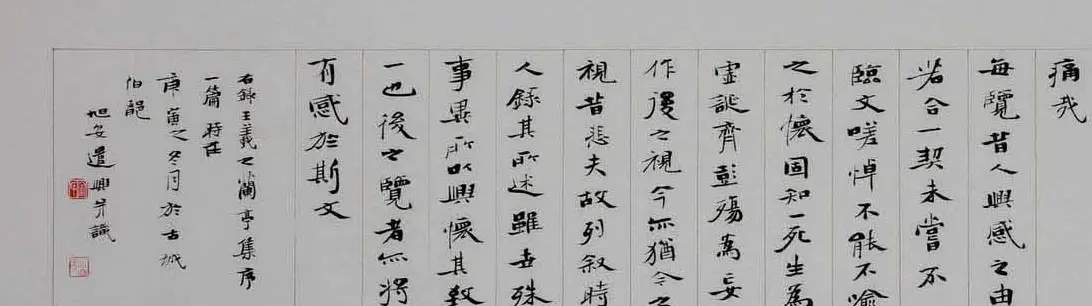 痛哉
每覽昔人興感之由
若合一契未嘗不
臨文嗟悼不能不喻
之於懷固知一死生為
虛誕齊彭殤為妄
作後之視今亦猶今之
視昔悲夫故列敘時
人錄其所述雖世殊
事異所以興懷其致
一也後之覽者亦將
有感於斯文
右錄王羲之蘭亭集序
一篇時在
庚寅之冬月於古城
伯
遣興并識